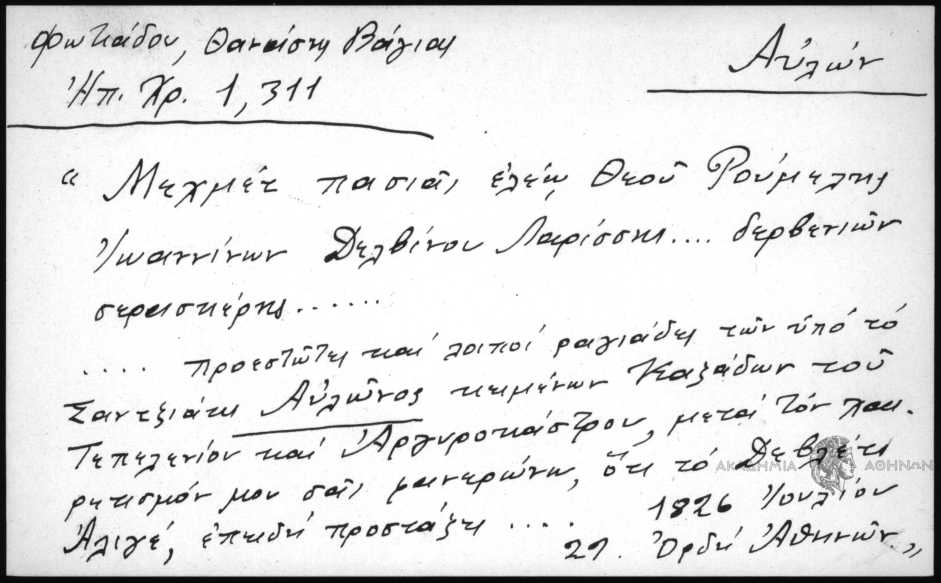 Φωτιάδου, Θανάση Βάγιας
Ἠπ. Χρ. 1, 311
Αὐλών
“ Μεχμὲτ πασιᾶς ἐλέῳ Θεοῦ Ρούμελης
Ἰωαννίνων Δελβίνου Λαρίσσης.... δερβενιῶν
σερασκέρης......
.... προεστῶτες καὶ λοιποί ραγιάδες τῶν ὑπό τό
Σαντζιάκι Αὐλῶνος κειμένων Καζάδων τοῦ
Τεπελενίου καί Ἀργυροκάστρου, μετά τόν χαι-
ρετισμόν μου σᾶς φανερώνω, ὅτι τό Δεβλέτι
Ἀλιγέ, ἐπειδή προστάξει ....
1826 Ἰουλίου
29. Ὀρδί Ἀθηνῶν„
ΑΚΑΔΗΜΙΑ ΑΘΗΝΩΝ